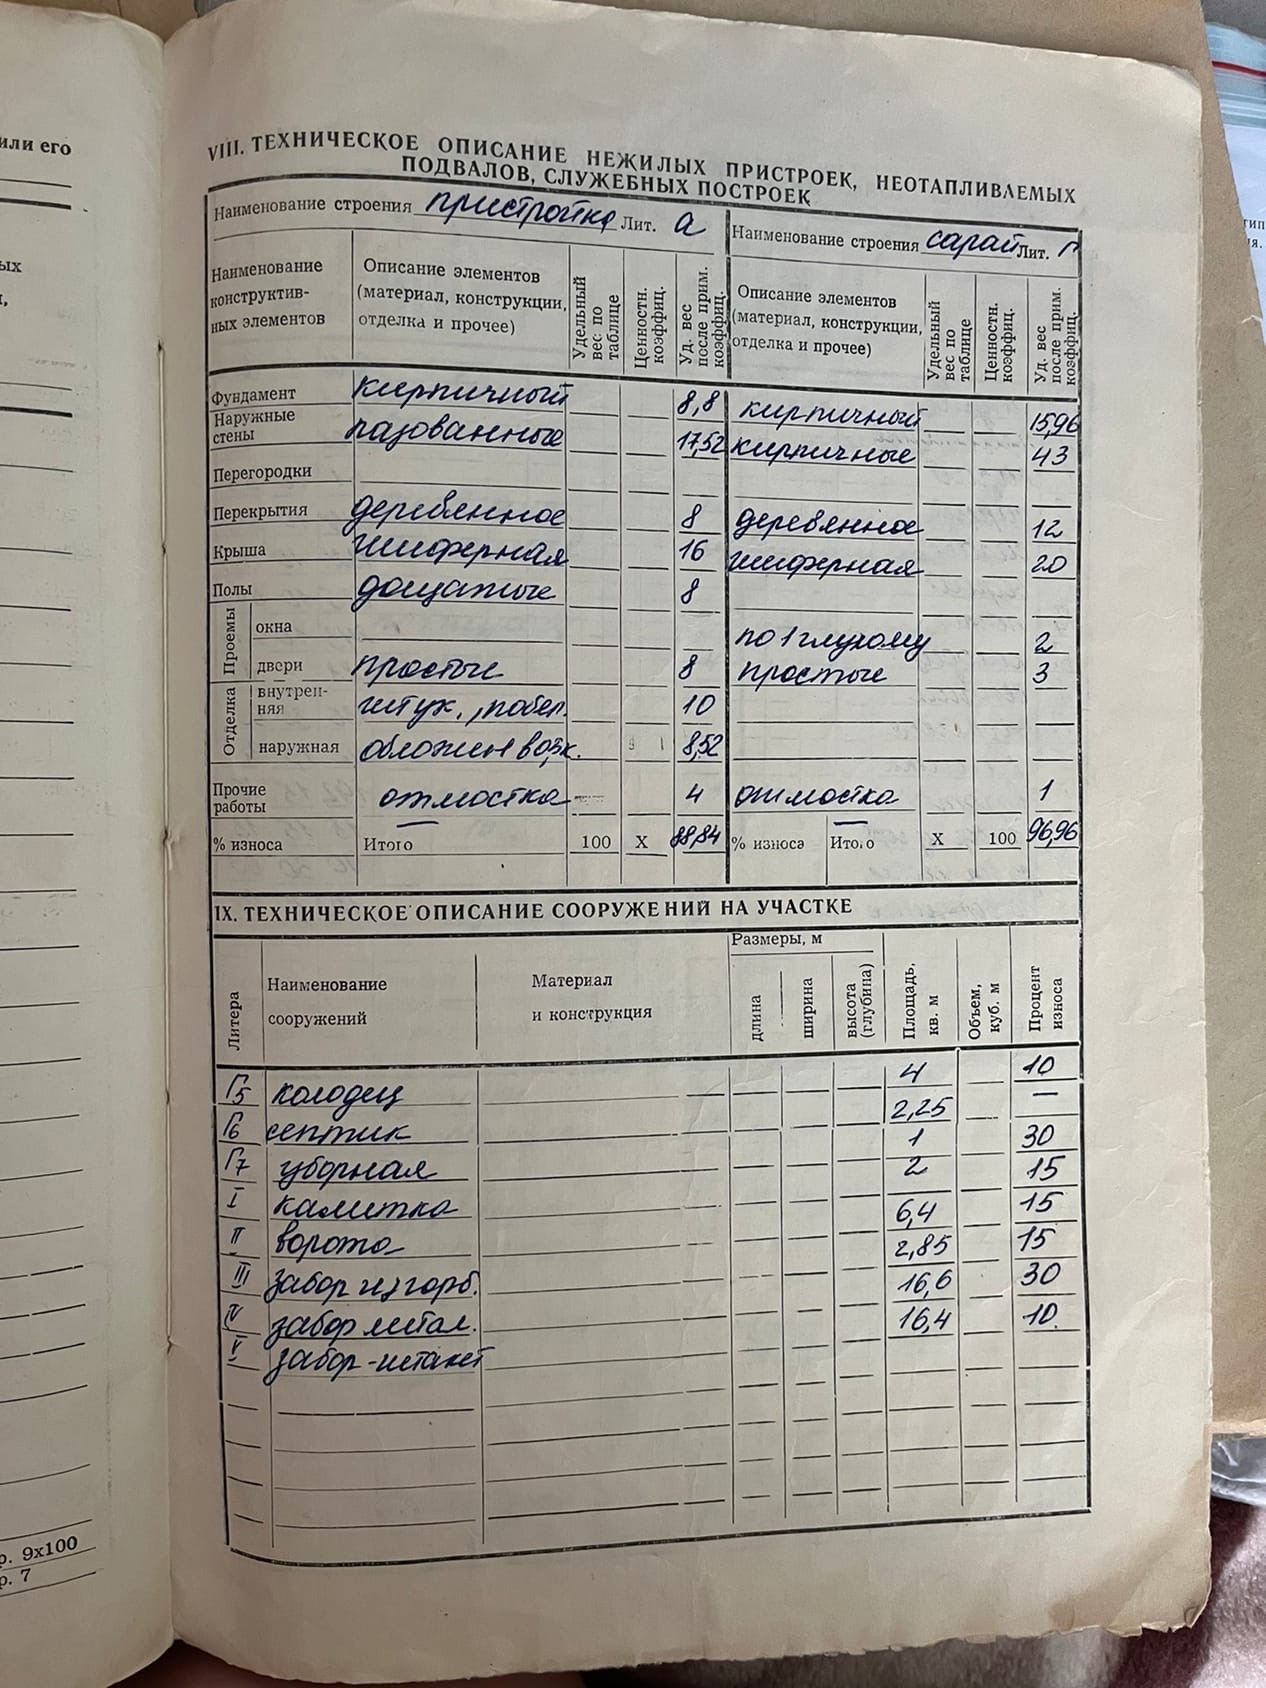 или его
ых
р. 9х100
р. 7
VIII. ТЕХНИЧЕСКОЕ ОПИСАНИЕ НЕЖИЛЫХ ПРИСТРОЕК, НЕОТАПЛИВАЕМЫХ
ПОДВАЛОВ, СЛУЖЕБНЫХ ПОСТРОЕК
Наименование строения пристройка Лит. а Наименование строения сарай Лит. Г
Наименование конструктив- ных элементов Описание элементов (материал, конструкции, отделка и прочее) Удельный вес по таблице Ценностн. коэффиц. Уд. вес после прим. коэффиц. Описание элементов (материал, конструкции, отделка и прочее) Удельный вес по таблице Ценностн. коэффиц. Уд. вес после прим. коэффиц.
Фундамент кирпичный 8,8 кирпичный 15,96
Наружные стены пазованные 17,52 кирпичные 43
Перегородки
Перекрытия деревянное 8 деревянное 12
Крыша шиферная 16 шиферная 20
Полы дощатые 8
Проемы окна по 1 глухому 2
двери простые 8 простые 3
Отделка внутрен- няя штук., побел. 10
наружная обложен в 0,5 к. 8,52
Прочие работы отмостка 4 отмостка 1
% износа Итого 100 X 88,84 % износа Итого X 100 96,96
IX. ТЕХНИЧЕСКОЕ ОПИСАНИЕ СООРУЖЕНИЙ НА УЧАСТКЕ
Литера Наименование сооружений Материал и конструкция Размеры, м длина ширина высота (глубина) Площадь, кв. м Объем, куб. м Процент износа
Г5 колодец 4 10
Г6 септик 2,25 —
Г7 уборная 1 30
I калитка 2 15
II ворота 6,4 15
III забор из горб. 2,85 15
IV забор метал. 16,6 30
V забор-штакет 16,4 10